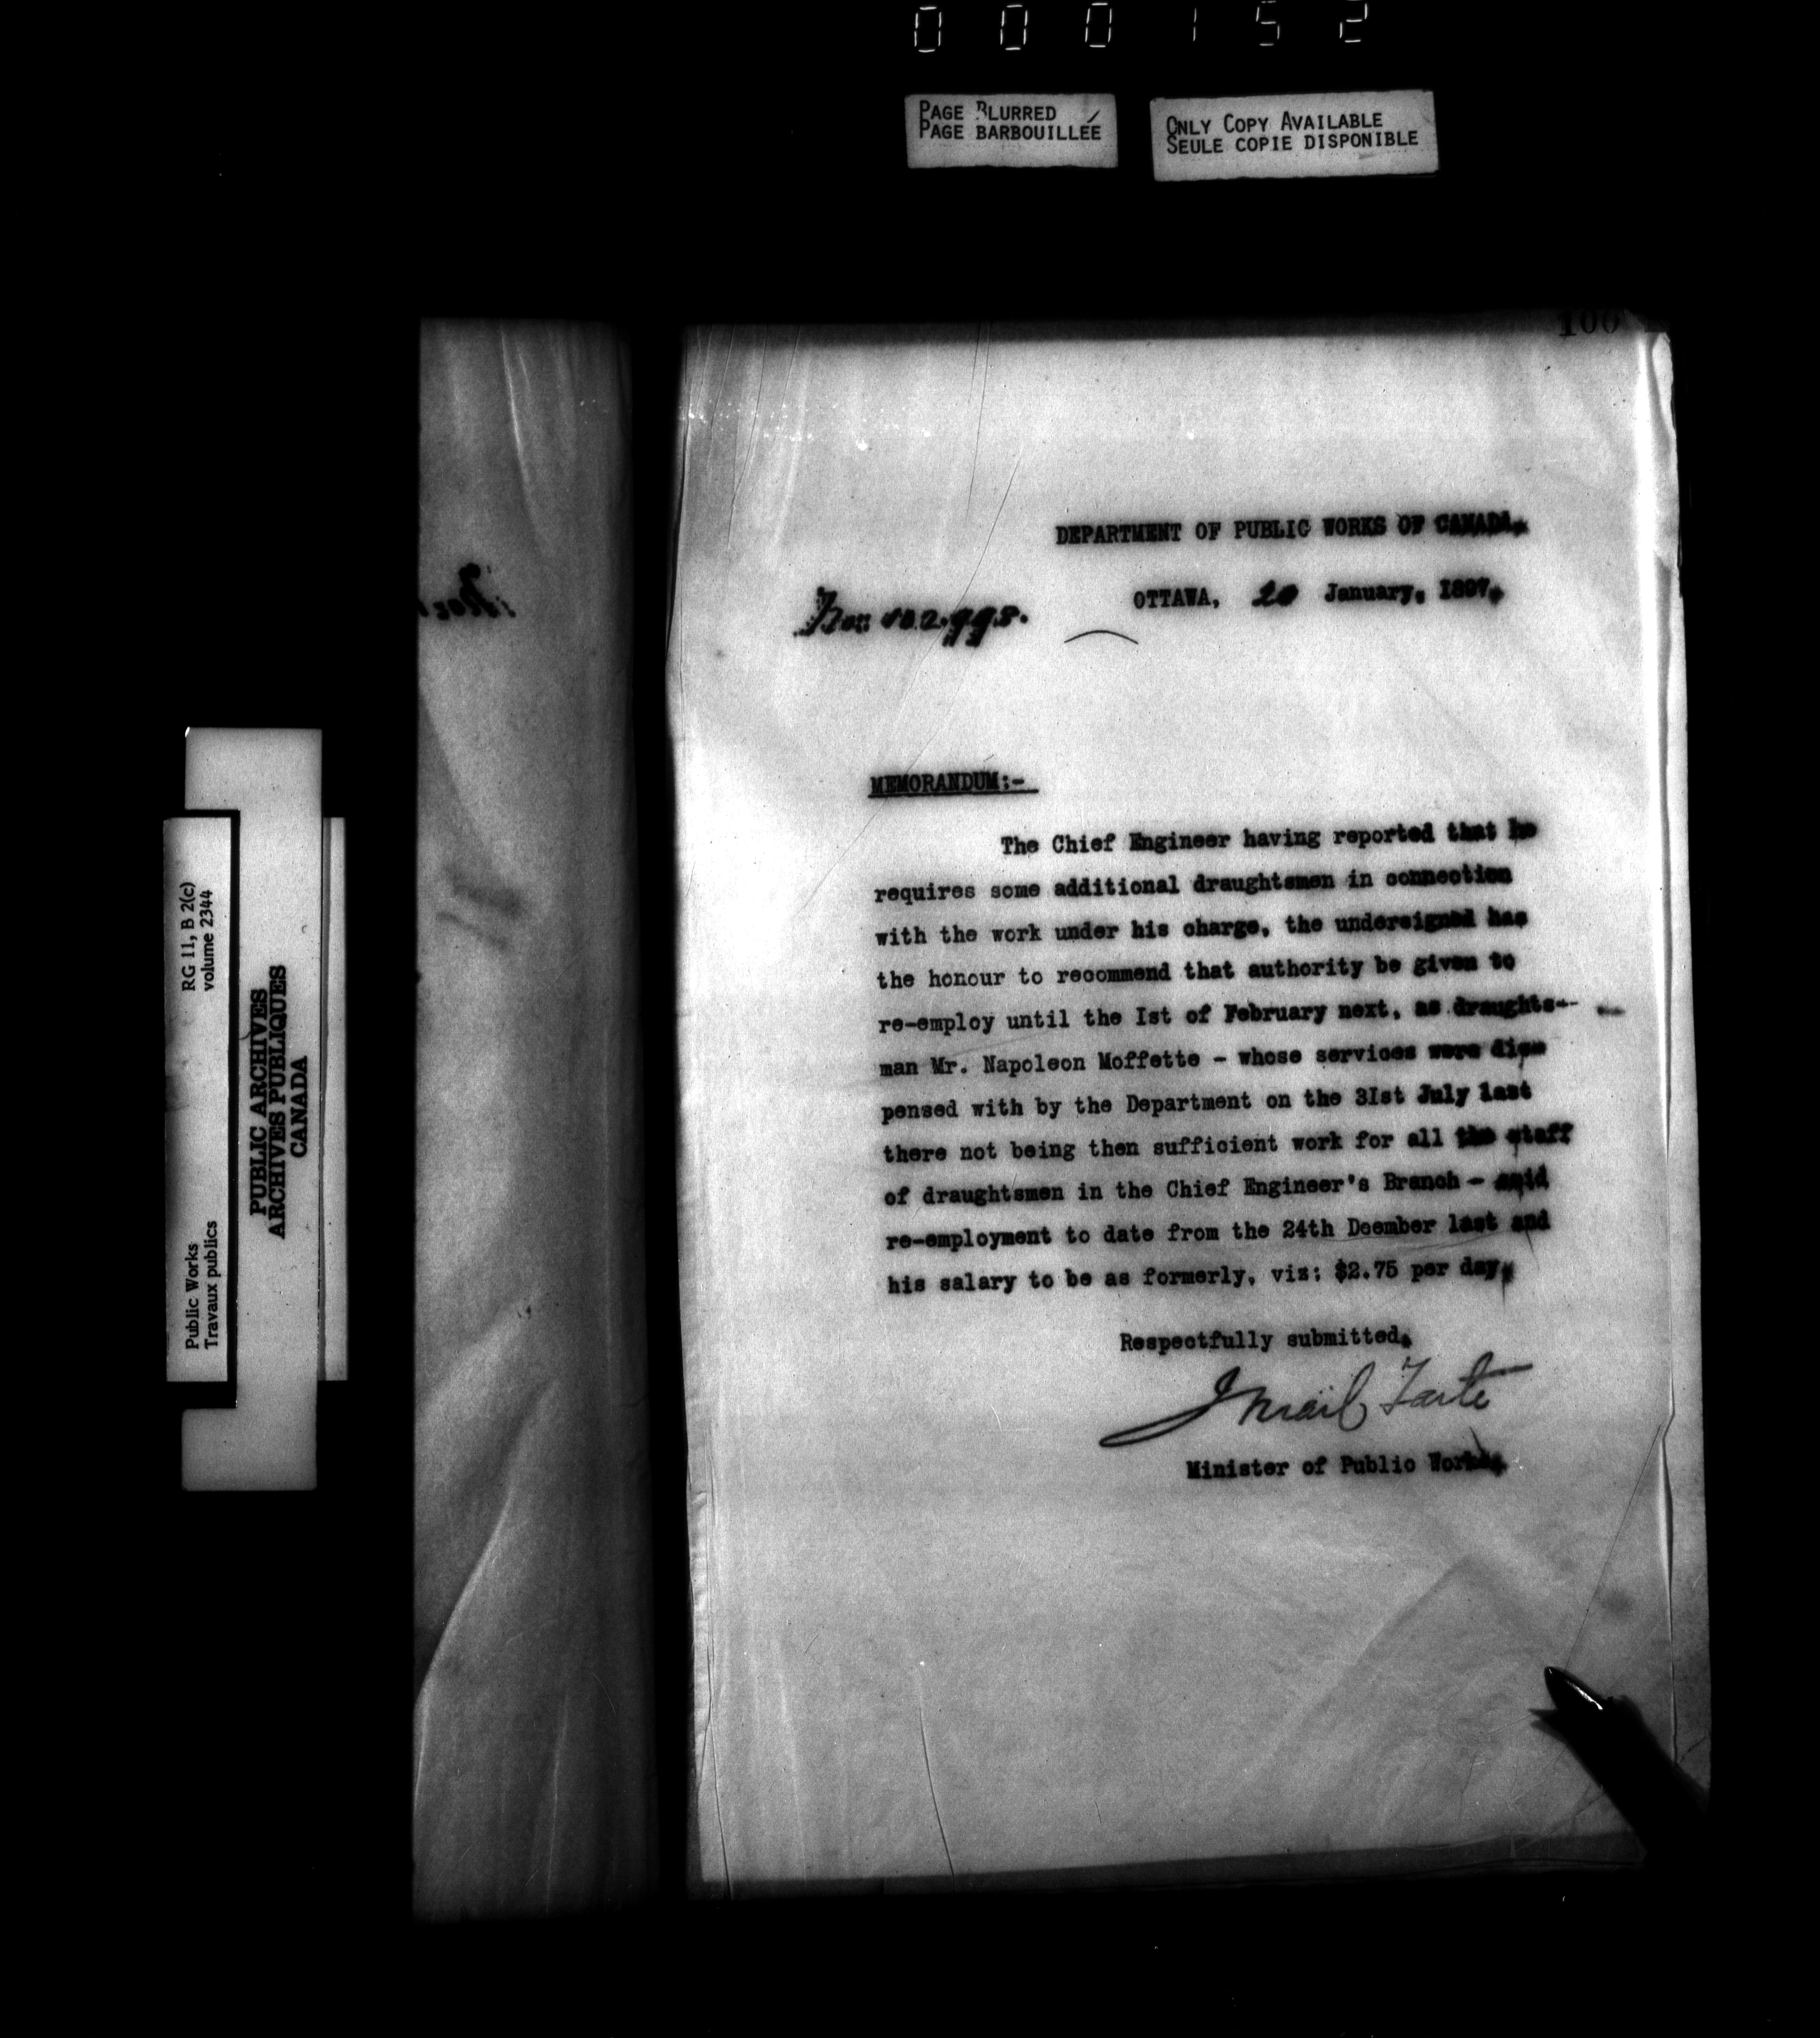 000152
PAGE BLURRED
PAGE BARBOUILLÉE
ONLY COPY AVAILABLE
SEULE COPIE DISPONIBLE
100
DEPARTMENT OF PUBLIC WORKS OF CANADA.
OTTAWA, 20 January, 1897.
MEMORANDUM:-
The Chief Engineer having reported that he
requires some additional draughtsmen in connection
with the work under his charge, the undersigned has
the honour to recommend that authority be given to
re-employ until the Ist of February next, as draughts-
man Mr. Napoleon Moffette - whose services were dis-
pensed with by the Department on the 3Ist July last
there not being then sufficient work for all the staff
of draughtsmen in the Chief Engineer's Branch - said
re-employment to date from the 24th Deember last and
his salary to be as formerly, viz; $2.75 per day.
Respectfully submitted.
J Israël Tarte
Minister of Public Works.
RG 11, B 2(c)
volume 2344
Public Works
Travaux publics
PUBLIC ARCHIVES
ARCHIVES PUBLIQUES
CANADA